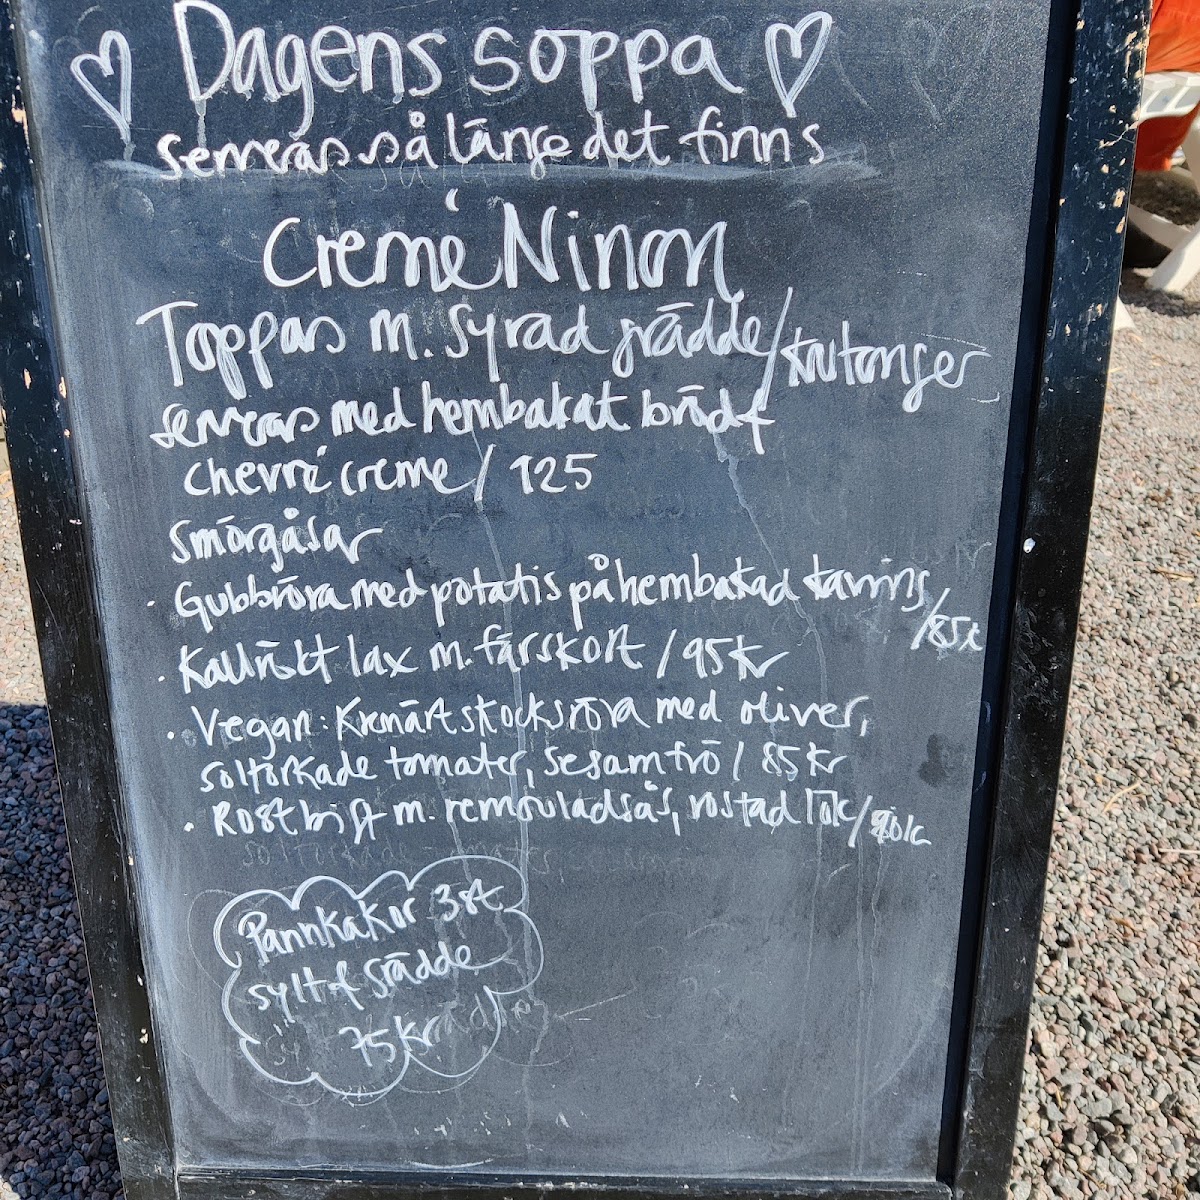 Dagens soppa
serveras så länge det finns
Cremé Ninon
Toppas m. syrad grädde/krutonger
serveras med hembakat bröd &
chevré creme / 125
Smörgåsar
· Gubbröra med potatis på hembakad kavring/85:-
· Kallrökt lax m. färskost / 95 kr
· Vegan: Kronärtskocksröra med oliver,
soltorkade tomater, sesamfrö / 85 kr
· Rostbiff m. remouladsås, rostad lök/90k
Pannkakor 3st
sylt & grädde
75 kr